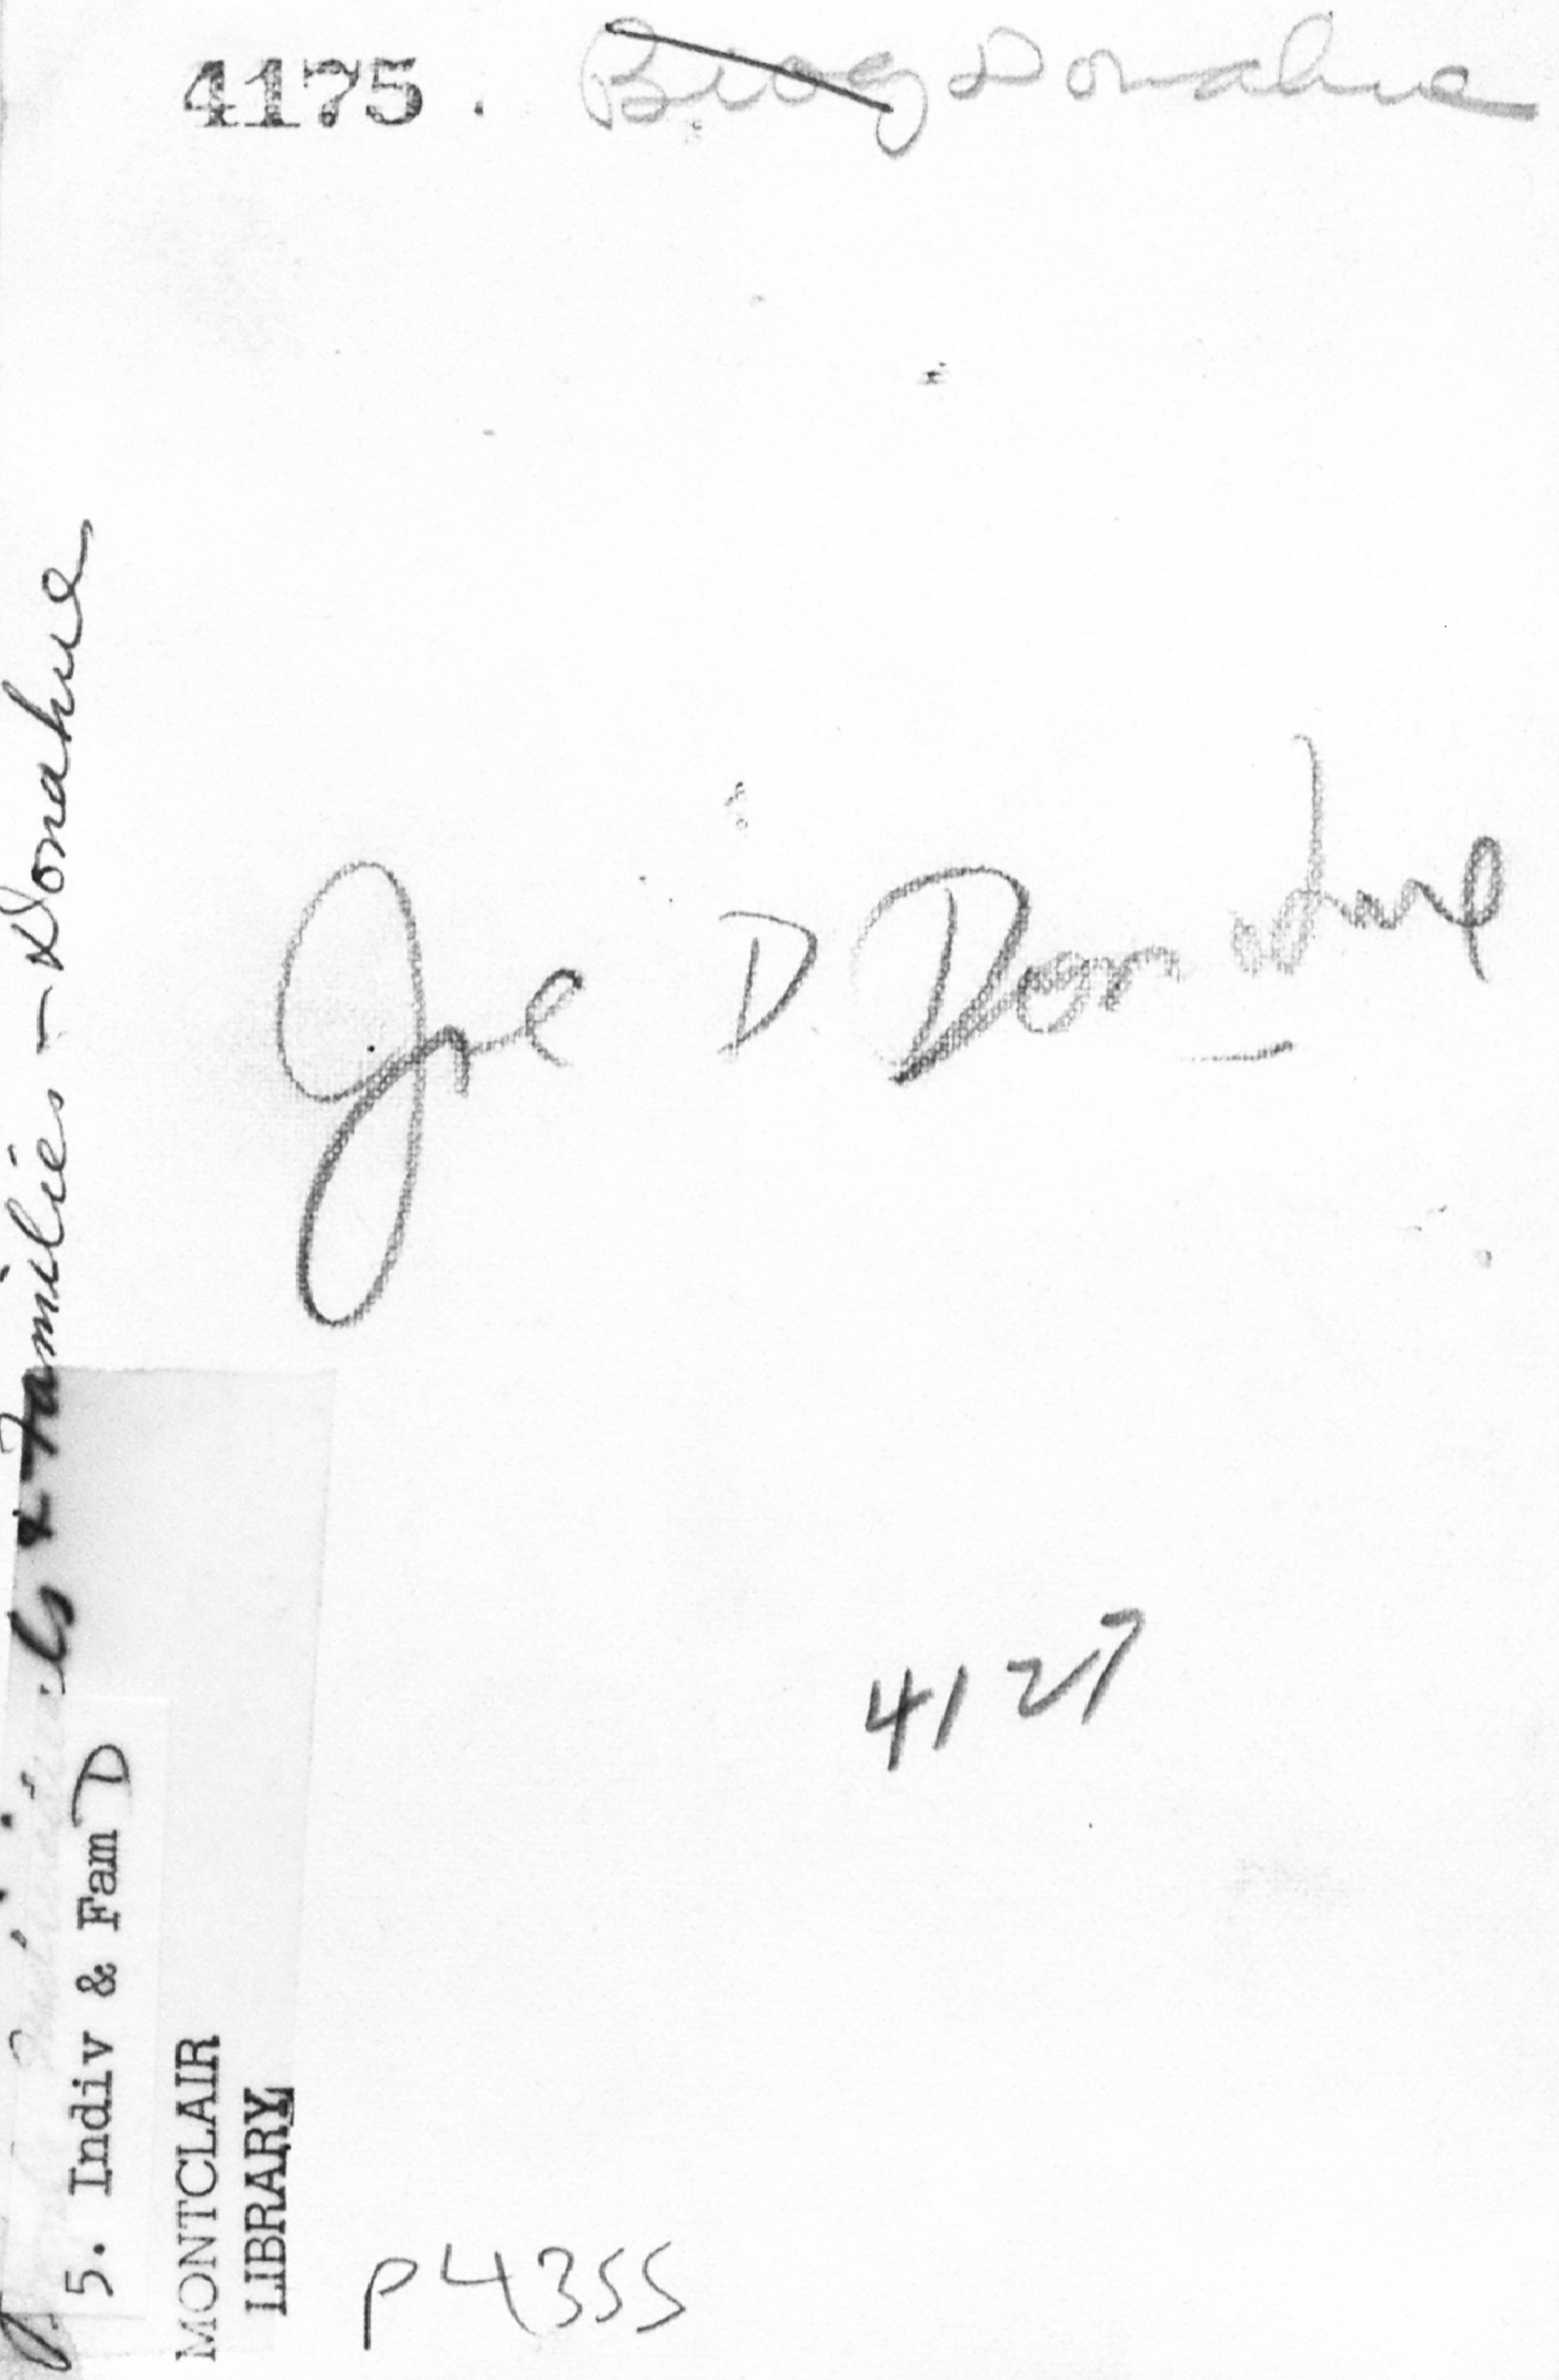 4175. Biog Donahue
Joe D Donahue
4127
P4355
& Families - Donahue
5. Indiv & Fam D
MONTCLAIR
LIBRARY